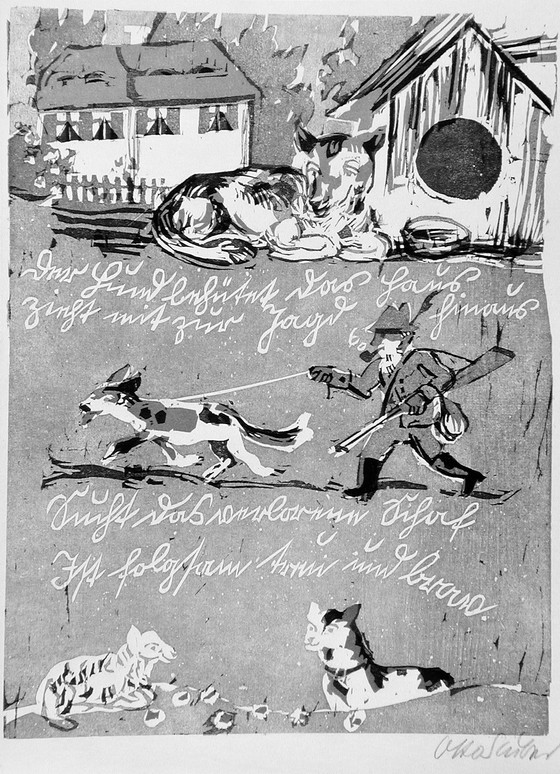 Der Hund behütet das Haus
Zieht mit zur Jagd hinaus
Sucht das verlorene Schaf
Ist folgsam treu und brav.
Otto